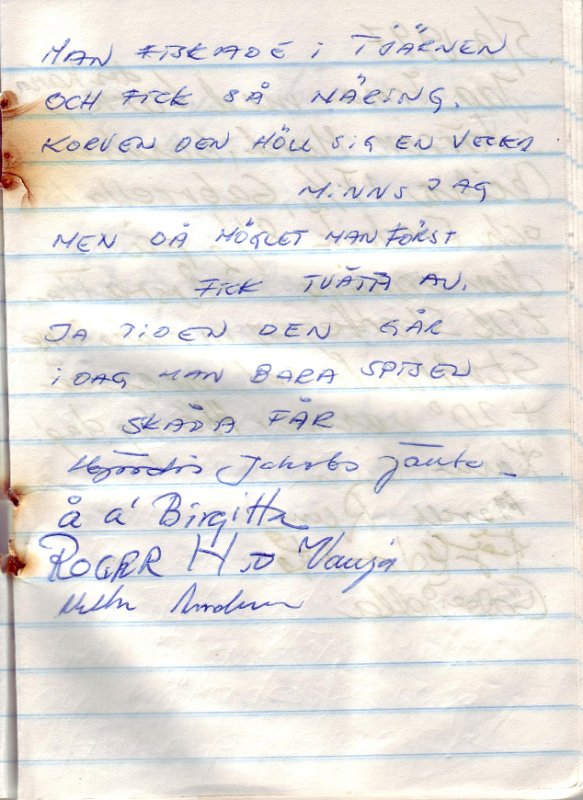 MAN FISKADE i TJÄRNEN
OCH FICK SÅ NÄRING.
KORVEN DEN HÖLL SiG EN VECKA
MiNNS JAG
MEN DÅ MÖGLET MAN FÖRST
FICK TVÄTTA AV.
JA TiDEN DEN GÅR
i DAG MAN BARA SPISEN
SKÅDA FÅR
Jakobs jänta
å a' Birgitta
ROGER H Vanja